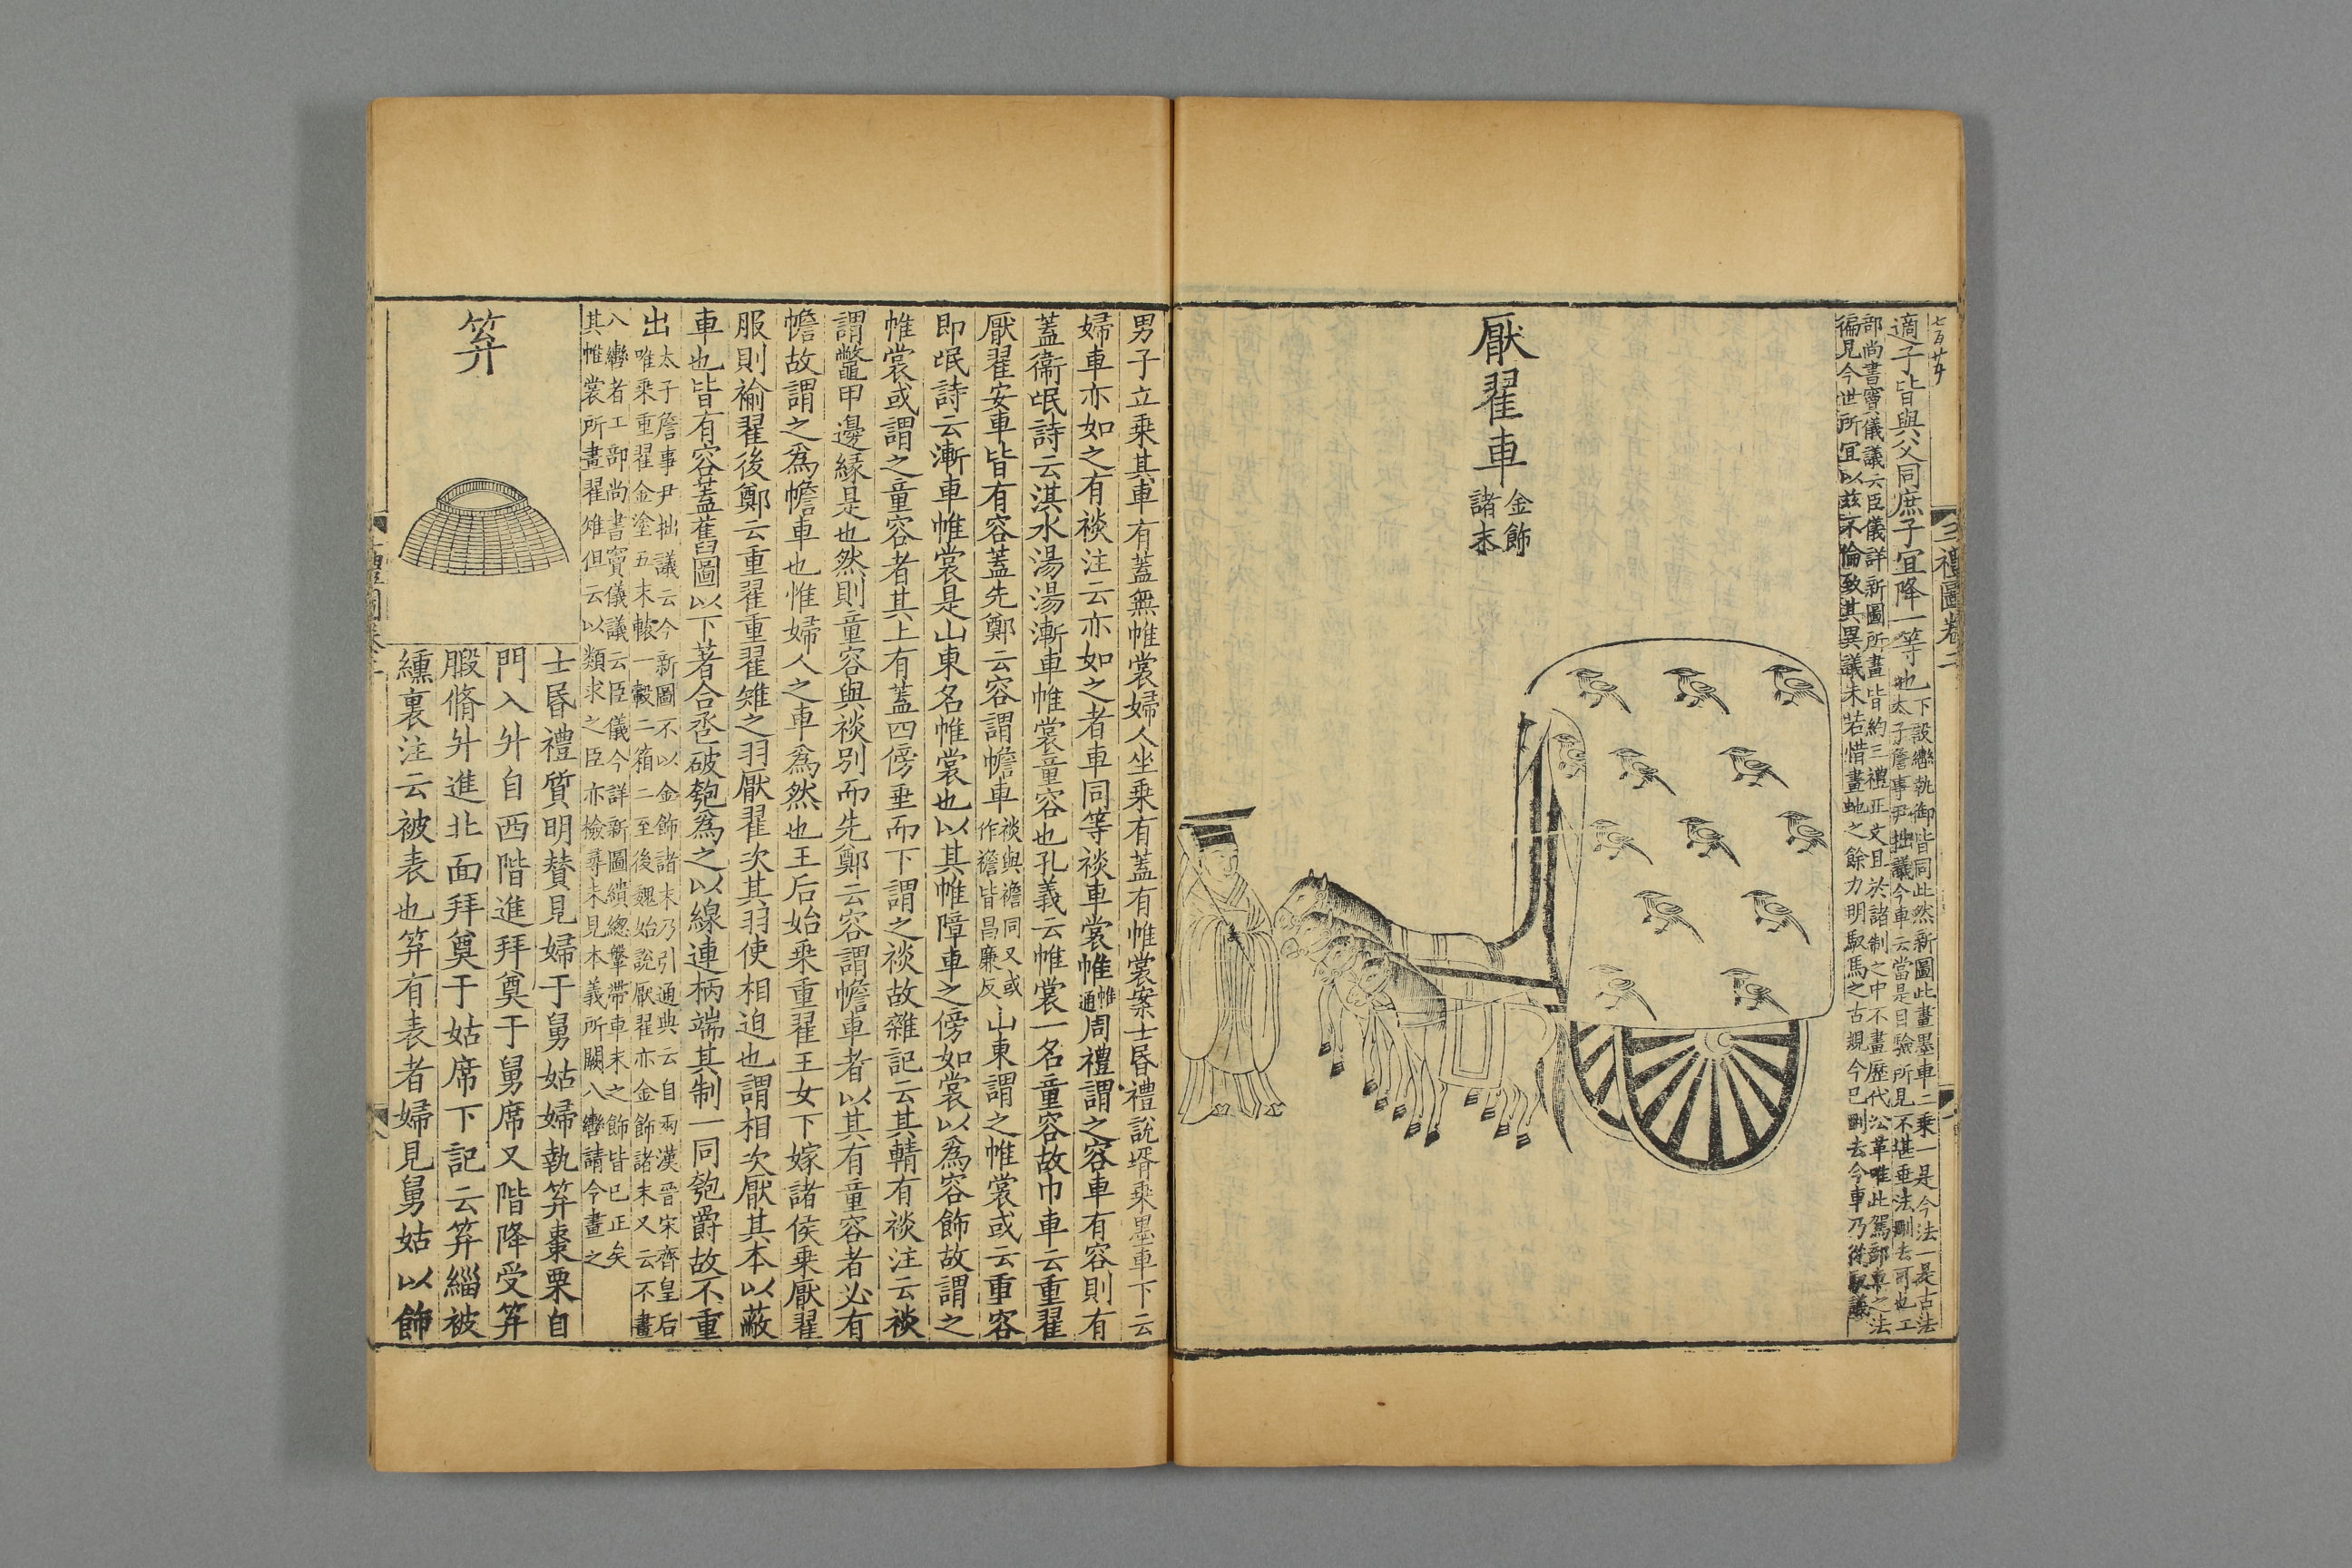 七百廿
三禮圖卷二
適子皆與父同庶子宜降一等也
下設轡執御皆同此然新圖此畫墨車二乘一是今法一是古法
太子詹事尹拙議今車云當是目驗所見不堪垂法刪去可也工
部尚書竇儀議云臣儀詳新圖所畫皆約三禮正文且於諸制之中不畫歷代沿革唯此駕部車之法
徧見今世所宜以兹不倫致其異議未若惜畫虵之餘力明馭馬之古規今已刪去今車乃從取議
厭翟車
金飾
諸末
男子立乘其車有蓋無帷裳婦人坐乘有蓋有帷裳案士昏禮說壻乘墨車下云
婦車亦如之有裧注云亦如之者車同等裧車裳帷周禮謂之容車有容則有
帷通
蓋衞氓詩云淇水湯湯漸車帷裳童容也孔義云帷裳一名童容故巾車云重翟
厭翟安車皆有容蓋先鄭云容謂幨車山東謂之帷裳或云重容
裧與襜同又或
作襜皆昌廉反
即氓詩云漸車帷裳是山東名帷裳也以其帷障車之傍如裳以爲容飾故謂之
帷裳或謂之童容者其上有蓋四傍垂而下謂之裧故雜記云其輤有裧注云裧
謂鼈甲邊緣是也然則童容與裧別而先鄭云容謂幨車者以其有童容者必有
幨故謂之爲幨車也惟婦人之車爲然也王后始乘重翟王女下嫁諸侯乘厭翟
服則褕翟後鄭云重翟重翟雉之羽厭翟次其羽使相迫也謂相次厭其本以蔽
車也皆有容蓋舊圖以下著合丞破匏爲之以線連柄端其制一同匏爵故不重
出
太子詹事尹拙議云今新圖不以金飾諸末乃引通典云自兩漢晉宋齊皇后
唯乘重翟金塗五末轅一轂二箱二至後魏始說厭翟亦金飾諸末又云不畫
八轡者工部尚書竇儀議云臣儀今詳新圖繢緫鞶帶車末之飾皆已正矣
其帷裳所畫翟雉但云以類求之臣亦檢尋未見本義所闕八轡請今畫之
笲
士昏禮質明贊見婦于舅姑婦執笲棗栗自
門入升自西階進拜奠于舅席又階降受笲
腶脩升進北面拜奠于姑席下記云笲緇被
纁裏注云被表也笲有表者婦見舅姑以飾